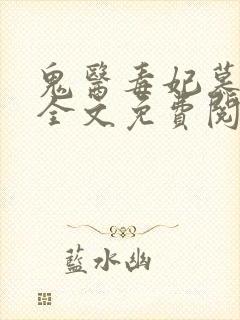 鬼醫毒妃慕
全文免費閱
藍水幽